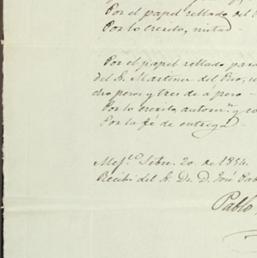 Por el papel sellado del
Por lo escrito, mitad
Por el papel sellado para
del S. Martinez del Rio, u
dro pesos y tres de a peso
Por lo escrito, autoron.ⁿ y co
Por la fé de entrega
Mej.ᶜᵒ Febro. 20 de 1854.
Recibí del S. Dn. D. José Pab
Pablo